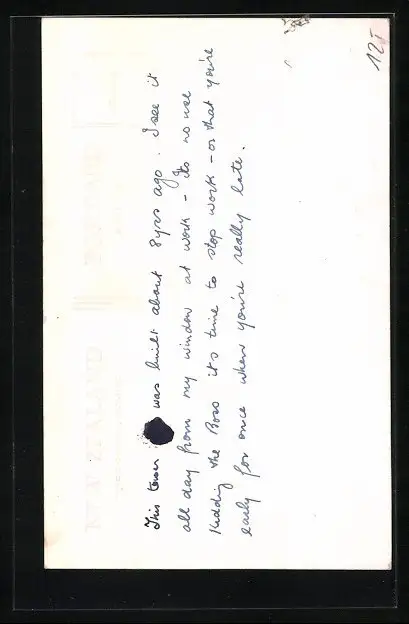 This tower was built about 8yrs ago. I see it
all day from my window at work - its no use
Kidding the Boss it's time to stop work - or that you're
early for once when you're really late.
12